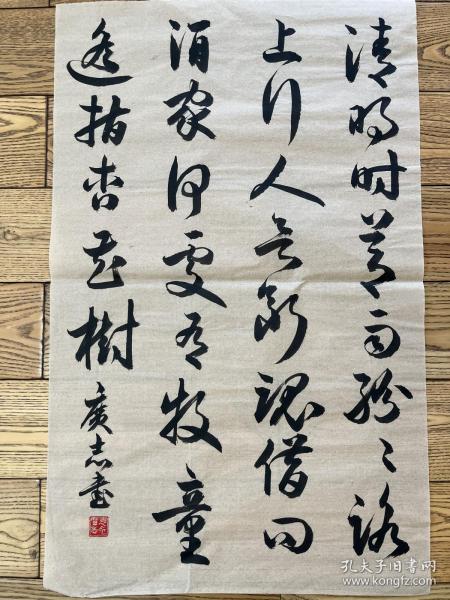 清明时节雨纷々路
上行人欲断魂借问
酒家何處有牧童
遥指杏花樹
廣志書
孔夫子旧书网
www.kongfz.com